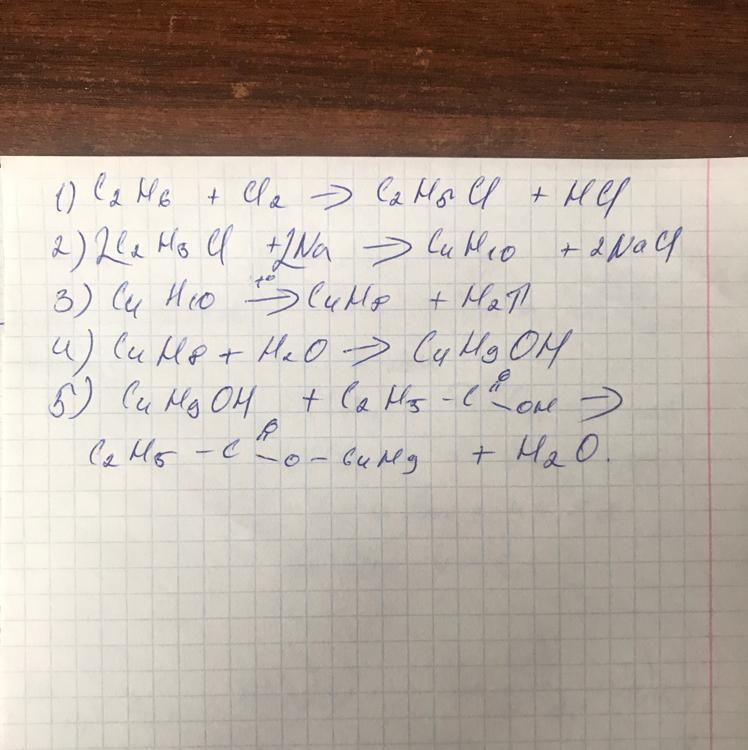 1) C2H6 + Cl2 → C2H5Cl + HCl
2) 2C2H5Cl + 2Na → C4H10 + 2NaCl
3) C4H10 t° → C4H8 + H2↑
4) C4H8 + H2O → C4H9OH
5) C4H9OH + C2H5 - C =O - OH →
C2H5 - C =O - O - C4H9 + H2O.